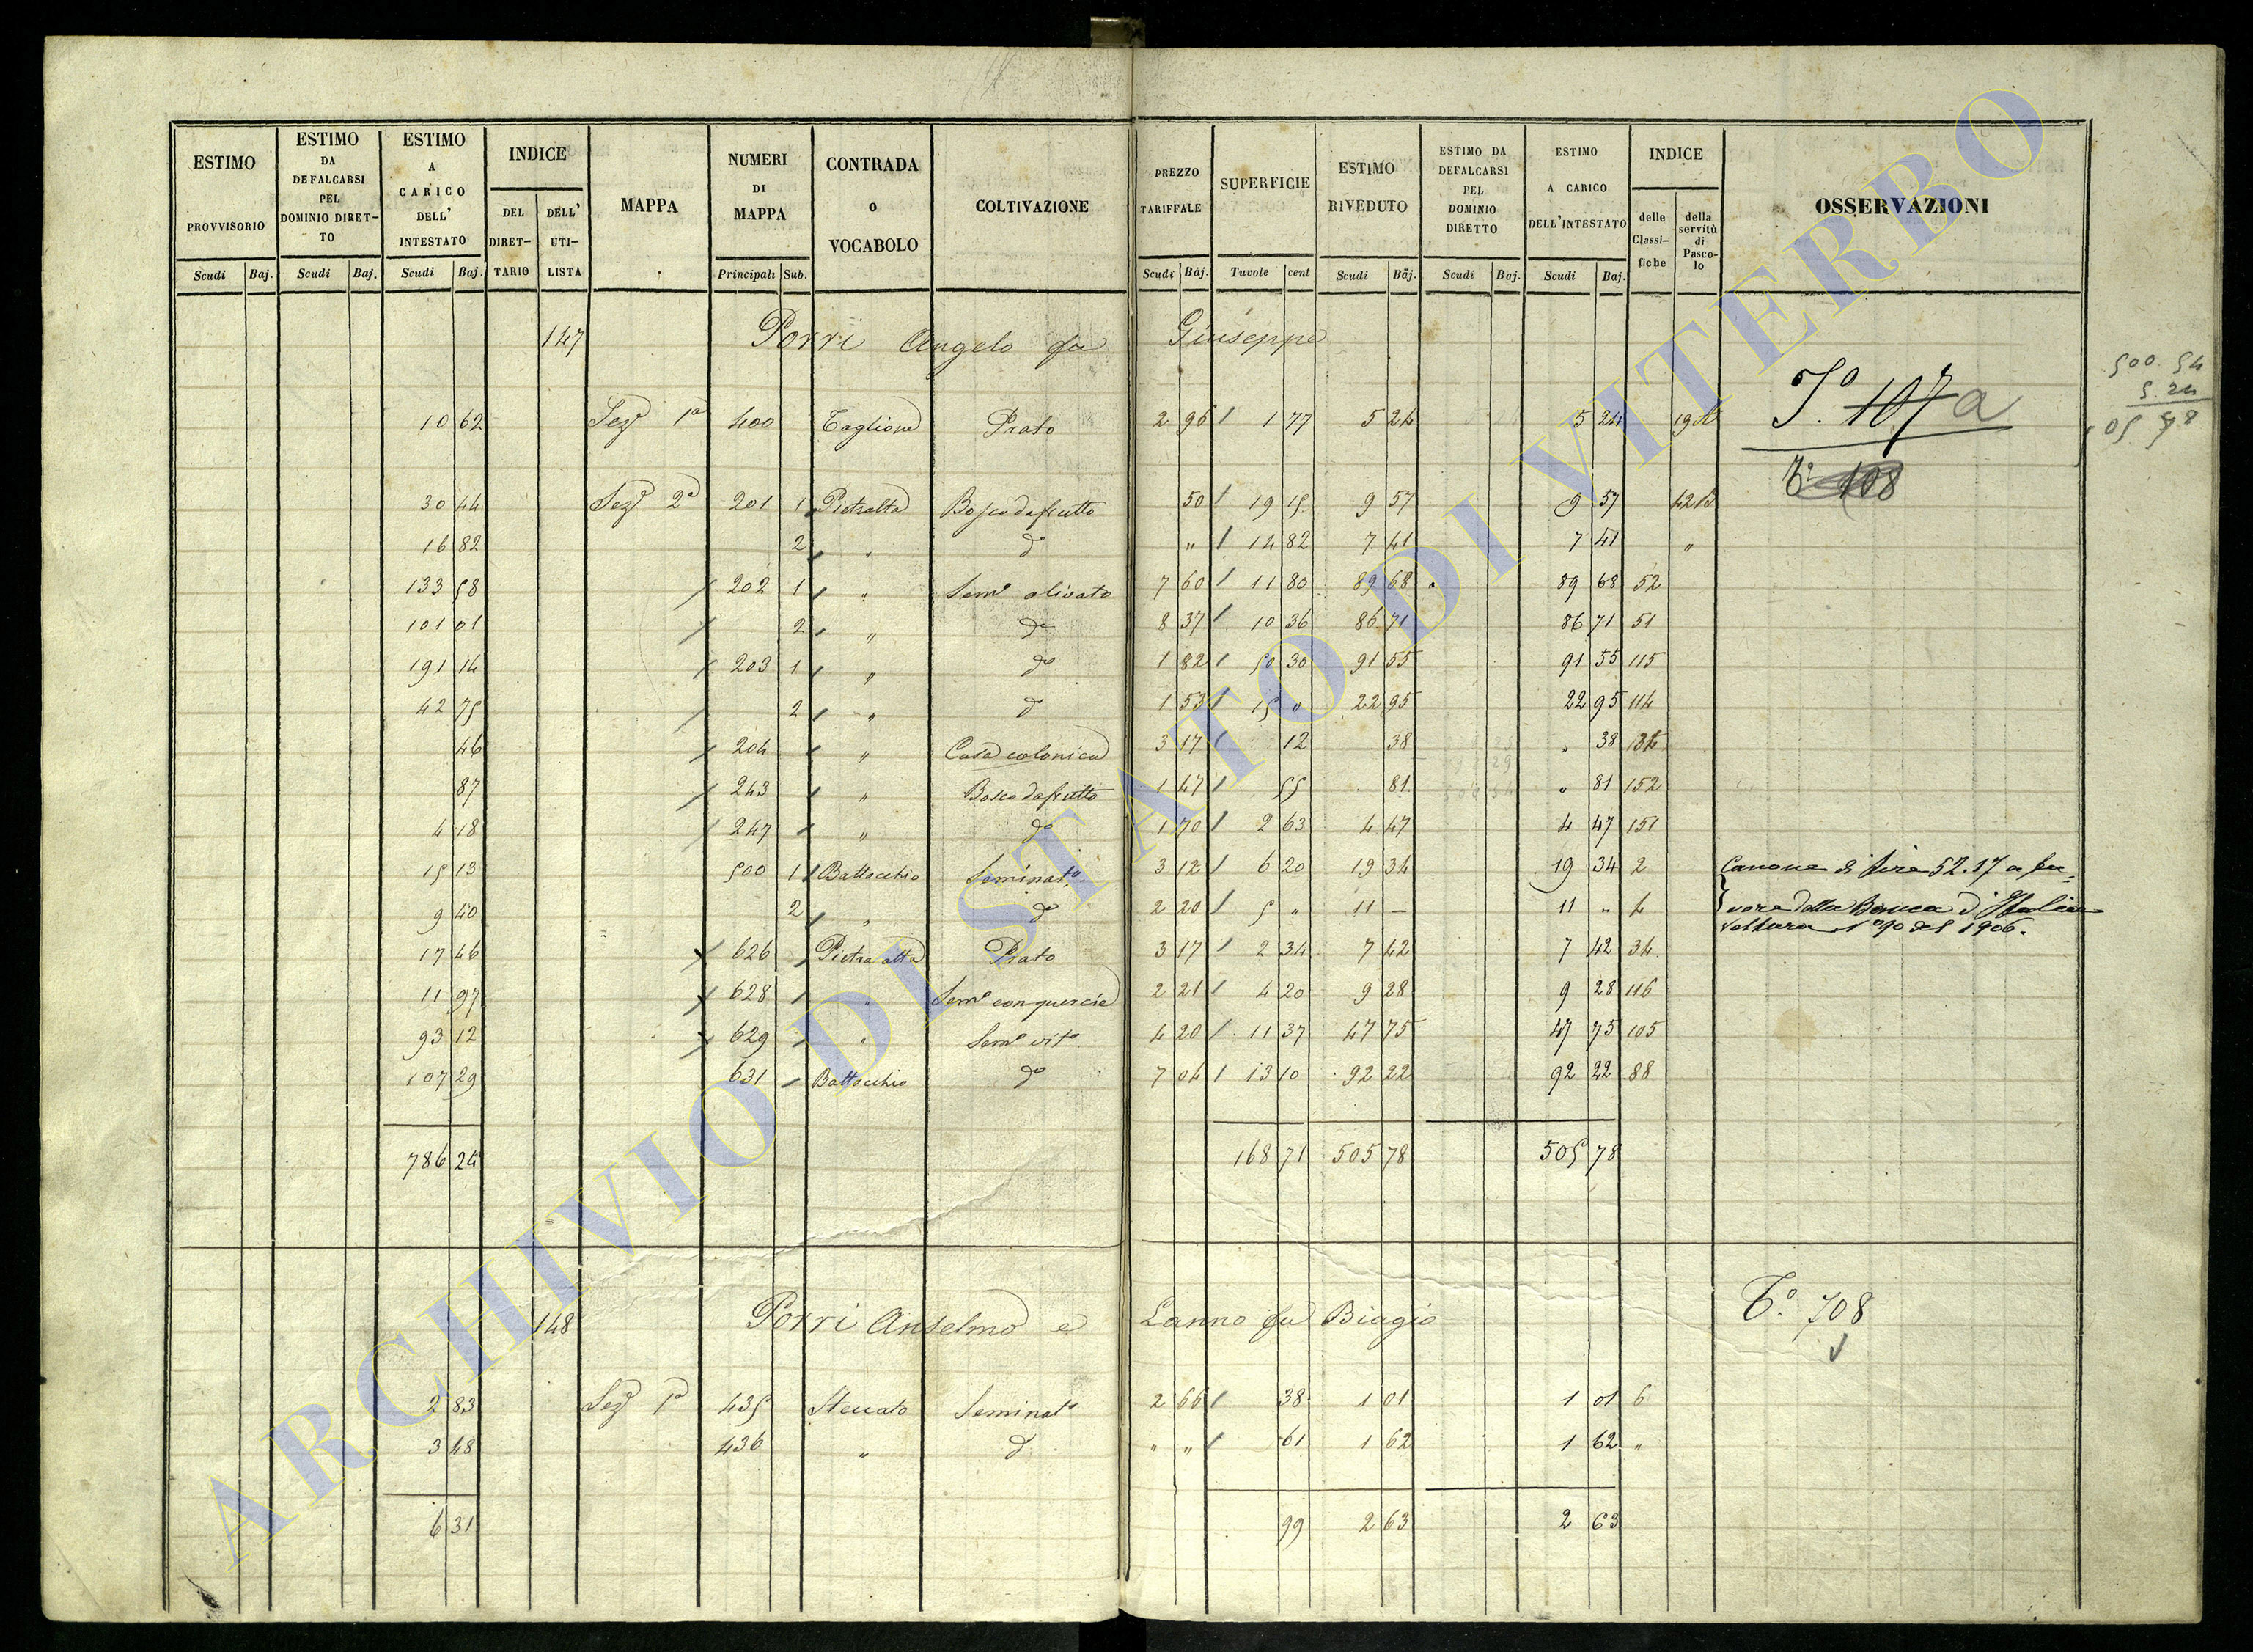 ESTIMO PROVVISORIO | ESTIMO DA DEFALCARSI PEL DOMINIO DIRET-TO | ESTIMO A CARICO DELL' INTESTATO | INDICE | MAPPA | NUMERI DI MAPPA | CONTRADA O VOCABOLO | COLTIVAZIONE | PREZZO TARIFFALE | SUPERFICIE | ESTIMO RIVEDUTO | ESTIMO DA DEFALCARSI PEL DOMINIO DIRETTO | ESTIMO A CARICO DELL'INTESTATO | INDICE | OSSERVAZIONI
DEL DIRET-TARIO | DELL' UTI-LISTA | delle Classi-fiche | della servitù di Pasco-lo
Scudi | Baj. | Scudi | Baj. | Scudi | Baj. | Principali | Sub. | Scudi | Baj. | Tavole | cent | Scudi | Baj. | Scudi | Baj. | Scudi | Baj.
147 Porri Angelo fu Giuseppe
500.54
5.24
T.o 107 a
10 62 Sez.e 1a 400 Taglione Prato 2 96 1 77 5 24 5 24 19
T.o 108
30 44 Sez.e 2a 201 1 Pietralta Bosco da frutto 50 19 15 9 57 9 57 42
16 82 2 " do " 14 82 7 41 7 41 "
133 58 202 1 " Semo olivato 7 60 11 80 89 68 89 68 52
101 01 2 " do 8 37 10 36 86 71 86 71 51
191 14 203 1 " do 1 82 50 30 91 55 91 55 115
42 75 2 " do 1 53 15 " 22 95 22 95 114
46 204 " Casa colonica 3 17 12 38 " 38 134
87 243 " Bosco da frutto 1 47 55 81 " 81 152
4 18 247 " do 1 70 2 63 4 47 4 47 151
15 13 500 1 Battocchio Seminato 3 12 6 20 19 34 19 34 2 Canone di Lire 52.17 a fa=
9 40 2 " do 2 20 5 " 11 — 11 " 4 vore della Banca d'Italia
Voltura no 90 del 1906.
17 46 626 Pietra alta Prato 3 17 2 34 7 42 7 42 34
11 97 628 " Semo con quercie 2 21 4 20 9 28 9 28 116
93 12 629 " Semo vito 4 20 11 37 47 75 47 75 105
107 29 631 Battocchio do 7 04 13 10 92 22 92 22 88
786 24 168 71 505 78 505 78
148 Porri Anselmo e Lanno fu Biagio T.o 708
2 83 Sez.e 1a 435 Steccato Seminato 2 66 38 1 01 1 01 6
3 48 436 " do " " 61 1 62 1 62 "
6 31 99 2 63 2 63
ARCHIVIO DI STATO DI VITERBO